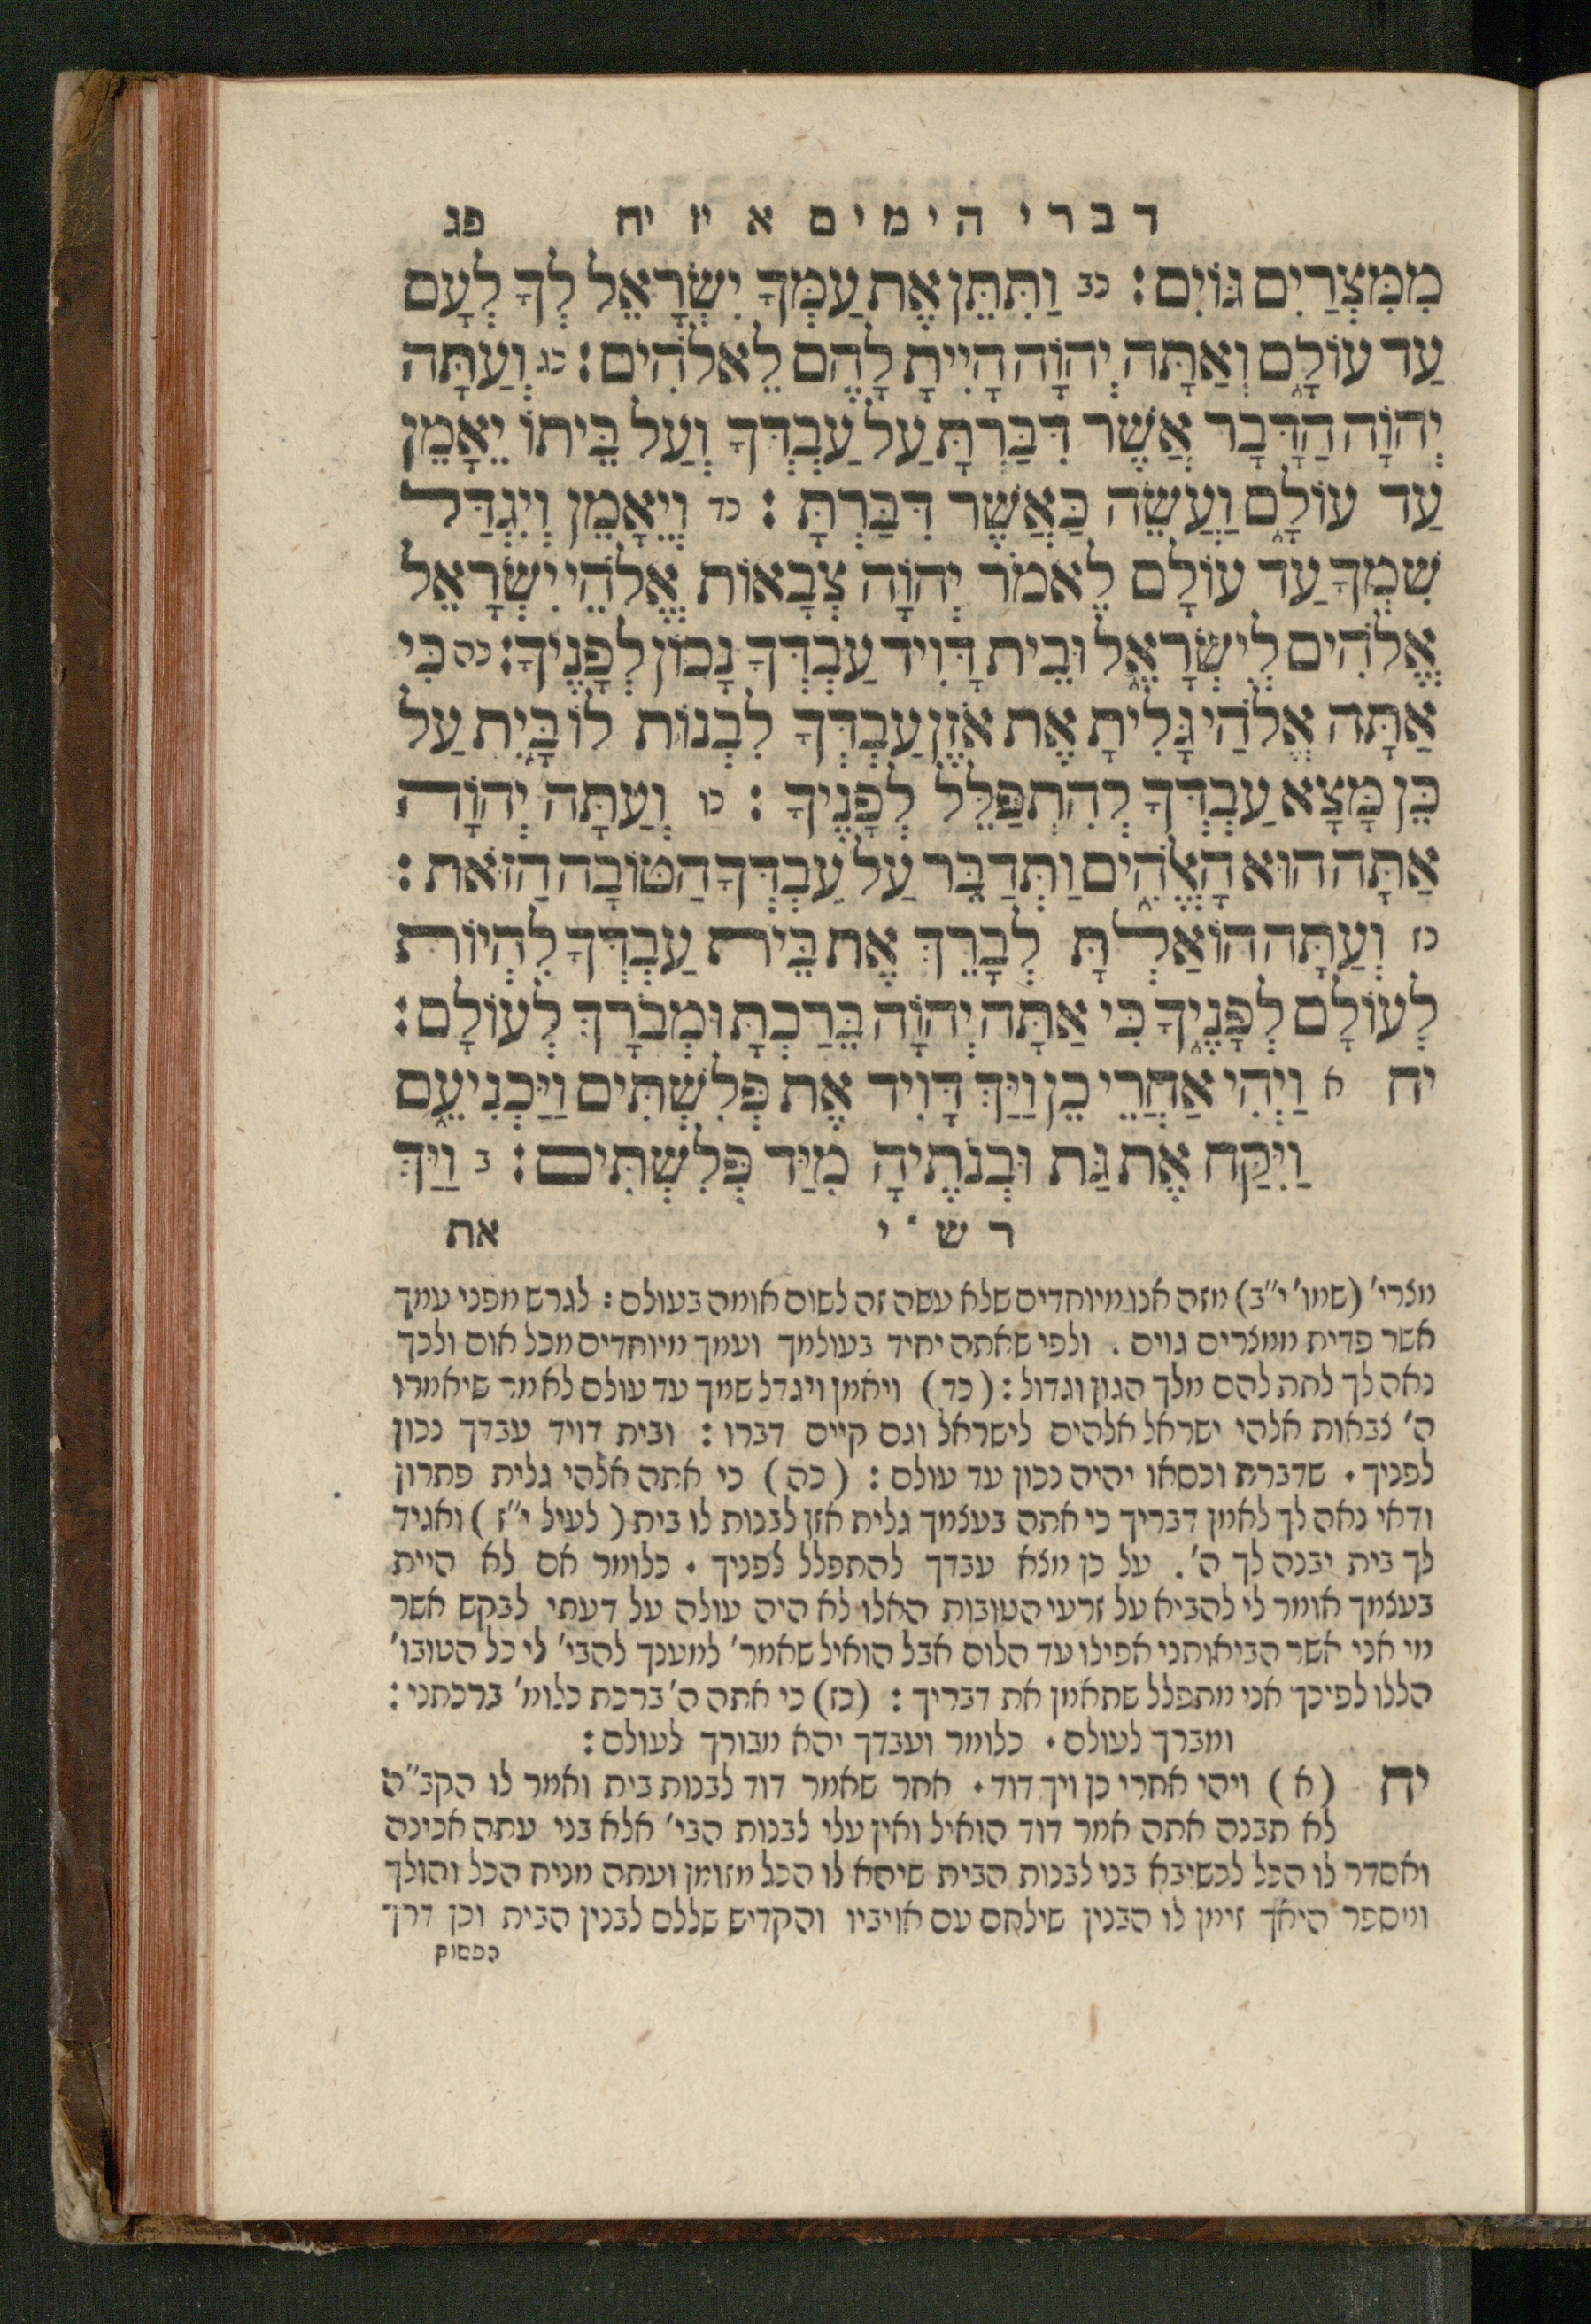 דברי הימים א יז יח פג
מִמִּצְרַיִם גּוֹיִם׃ כב וַתִּתֵּן אֶת עַמְּךָ יִשְׂרָאֵל לְךָ לְעָם
עַד עוֹלָ֑ם וְאַתָּה יְהוָֹה הָיִיתָ לָהֶם לֵאלֹהִים׃ כג וְעַתָּה
יְהוָֹה הַדָּבָר אֲשֶׁר דִּבַּרְתָּ עַל עַבְדְּךָ וְעַל בֵּיתוֹ יֵאָמֵן
עַד עוֹלָ֑ם וַעֲשֵׂה כַּאֲשֶׁר דִּבַּרְתָּ׃ כד וְיֵאָמֵן וְיִגְדַּל
שִׁמְךָ עַד עוֹלָם לֵאמֹר יְהוָֹה צְבָאוֹת אֱלֹהֵי יִשְׂרָאֵל
אֱלֹהִים לְיִשְׂרָאֵ֑ל וּבֵית דָּוִיד עַבְדְּךָ נָכוֹן לְפָנֶיךָ׃ כה כִּי
אַתָּה אֱלֹהַי גָּלִיתָ אֶת אֹזֶן עַבְדְּךָ לִבְנוֹת לוֹ בָּ֑יִת עַל
כֵּן מָּצָא עַבְדְּךָ לְהִתְפַּלֵּל לְפָנֶיךָ׃ כו וְעַתָּה יְהוָֹה
אַתָּה הוּא הָאֱלֹהִ֑ים וַתְּדַבֵּר עַל עַבְדְּךָ הַטּוֹבָה הַזֹּאת׃
כז וְעַתָּה הוֹאַלְתָּ לְבָרֵךְ אֶת בֵּית עַבְדְּךָ לִהְיוֹת
לְעוֹלָם לְפָנֶ֑יךָ כִּי אַתָּה יְהוָֹה בֵּרַכְתָּ וּמְבֹרָךְ לְעוֹלָם׃
יח א וַיְהִי אַחֲרֵי כֵן וַיַּךְ דָּוִיד אֶת פְּלִשְׁתִּים וַיַּכְנִיעֵ֑ם
וַיִּקַּח אֶת גַּת וּבְנֹתֶיהָ מִיַּד פְּלִשְׁתִּים׃ ב וַיַּךְ
רש"י את
מצרי' (שמו' י"ב) מזה אנו מיוחדים שלא עשה זה לשום אומה בעולם : לגרש מפני עמך
אשר פדית ממצרים גוים . ולפי שאתה יחיד בעולמך ועמך מיוחדים מכל אום ולכך
נאה לך לתת להם מלך הגון וגדול : (כד) ויאמן ויגדל שמך עד עולם לאמר שיאמרו
ה' צבאות אלהי ישראל אלהים לישראל וגם קיים דברו : ובית דויד עבדך נכון
לפניך . שדברת וכסאו יהיה נכון עד עולם : (כה) כי אתה אלהי גלית פתרון
ודאי נאה לך לאמן דבריך כי אתה בעצמך גלית אזן לבנות לו בית (לעיל י"ז) ואגיד
לך בית יבנה לך ה' . על כן מצא עבדך להתפלל לפניך . כלומר אם לא היית
בעצמך אומר לי להביא על זרעי הטובות האלו לא היה עולה על דעתי לבקש אשר
מי אני אשר הביאותני אפילו עד הלום אבל הואיל שאמר' למענך להבי' לי כל הטובו'
הללו לפיכך אני מתפלל שתאמן את דבריך : (כז) כי אתה ה' ברכת כלומ' ברכתני :
ומברך לעולם . כלומר ועבדך יהא מבורך לעולם :
יח (א) ויהי אחרי כן ויך דוד . אחר שאמר דוד לבנות בית ואמר לו הקב"ה
לא תבנה אתה אמר דוד הואיל ואין עלי לבנות הבי' אלא בני עתה אכינה
ואסדר לו הכל לכשיבא בני לבנות הבית שיהא לו הכל מזומן ועתה מניח הכל והולך
ומספר היאך זימן לו הבנין שילחם עם אויביו והקדיש שללם לבנין הבית וכן דרך
הפסוק